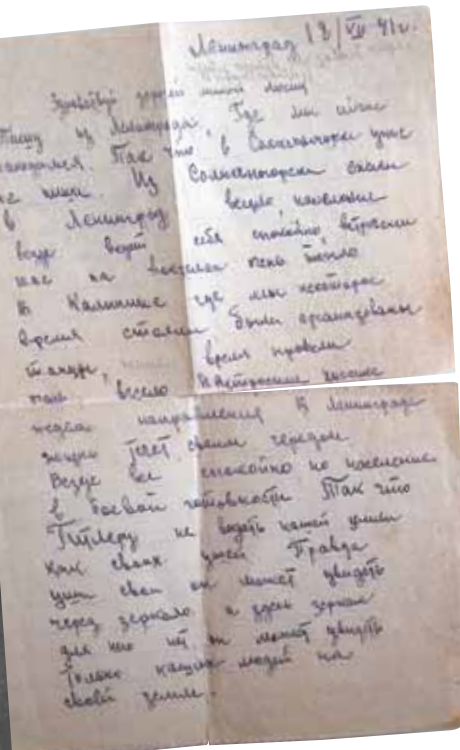 Ленинград 12/VII 41 г.
Здравствуй дорогой милой
Пишу из Ленинграда, Где мы сейчас
находимся. Так что в Солнечногорск уже
не пиши. Из Солнечногорска ехали
в Ленинград весело население
везде ведет себя спокойно встречали
нас на вокзалах очень тепло
В Калинине где мы некоторое
время стояли были организованы
танцы, время провели
там весело Настроение
направления В Ленинграде
жизнь течет своим чередом
Везде все спокойно но население
в боевой готовности Так что
Гитлеру не видать нашей земли
как своих ушей Правда
уши свои он может увидеть
через зеркало а здесь зеркал
для него нет он может увидеть
только наших людей на
своей земле.